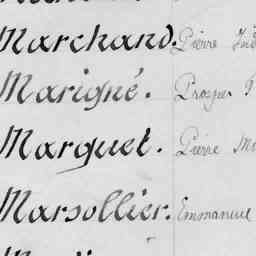 Marchand. Pierre
Marigné. Prosper
Marquet. Pierre
Marsollier. Emmanuel